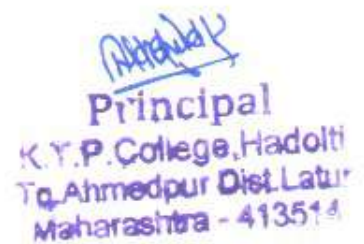 Principal
K.Y.P.College,Hadolti
Tq.Ahmedpur Dist.Latur
Maharashtra - 413514